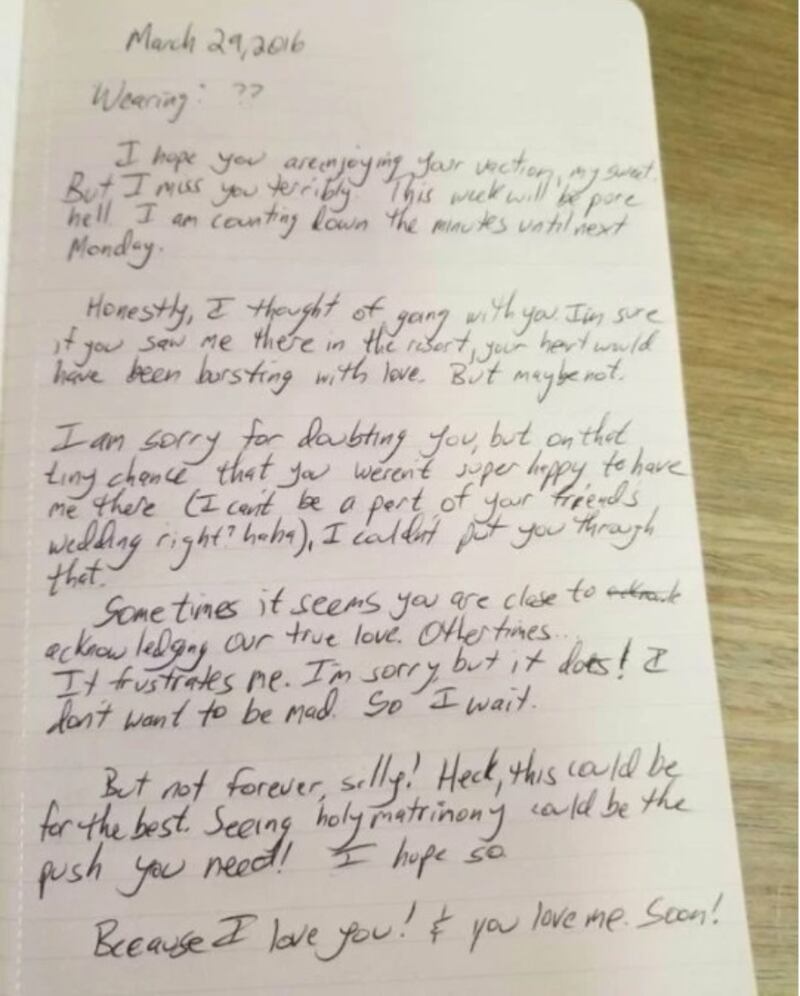 March 29, 2016
Wearing: ??
I hope you areenjoying your vaction, my sweet.
But I miss you terribly. This week will be pore
hell. I am counting down the minutes until next
Monday.
Honestly, I thought of going with you. I'm sure
if you saw me there in the resort, your heart would
have been bursting with love. But maybe not.
I am sorry for doubting you, but on that
tiny chance that you weren't super happy to have
me there (I can't be a part of your friend's
wedding right? haha), I couldn't put you through
that.
Sometimes it seems you are close to
acknowledging our true love. Other times...
It frustrates me. I'm sorry, but it does! I
don't want to be mad. So I wait.
But not forever, silly! Heck, this could be
for the best. Seeing holy matrinony could be the
push you need! I hope so.
Because I love you! & you love me. Soon!